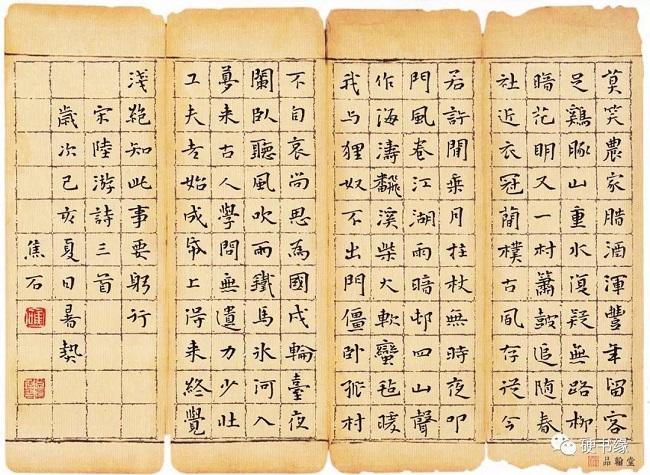 莫笑農家腊酒渾豐年留客
足鷄豚山重水復疑無路柳
暗花明又一村簫皷追隨春
社近衣冠簡樸古風存從今
若許閒乗月拄杖無時夜叩
門風卷江湖雨暗邨四山聲
作海濤飜溪柴火軟蠻氈暖
我与狸奴不出門僵卧孤村
不自哀尚思為國戍輪臺夜
闌卧聽風吹雨鐵馬氷河入
夢来古人學問無遺力少壯
工夫老始成帋上得来終覺
淺絶知此事要躬行
宋陸游詩三首
歲次己亥夏日暑熱
焦石
硬书缘
品翰堂